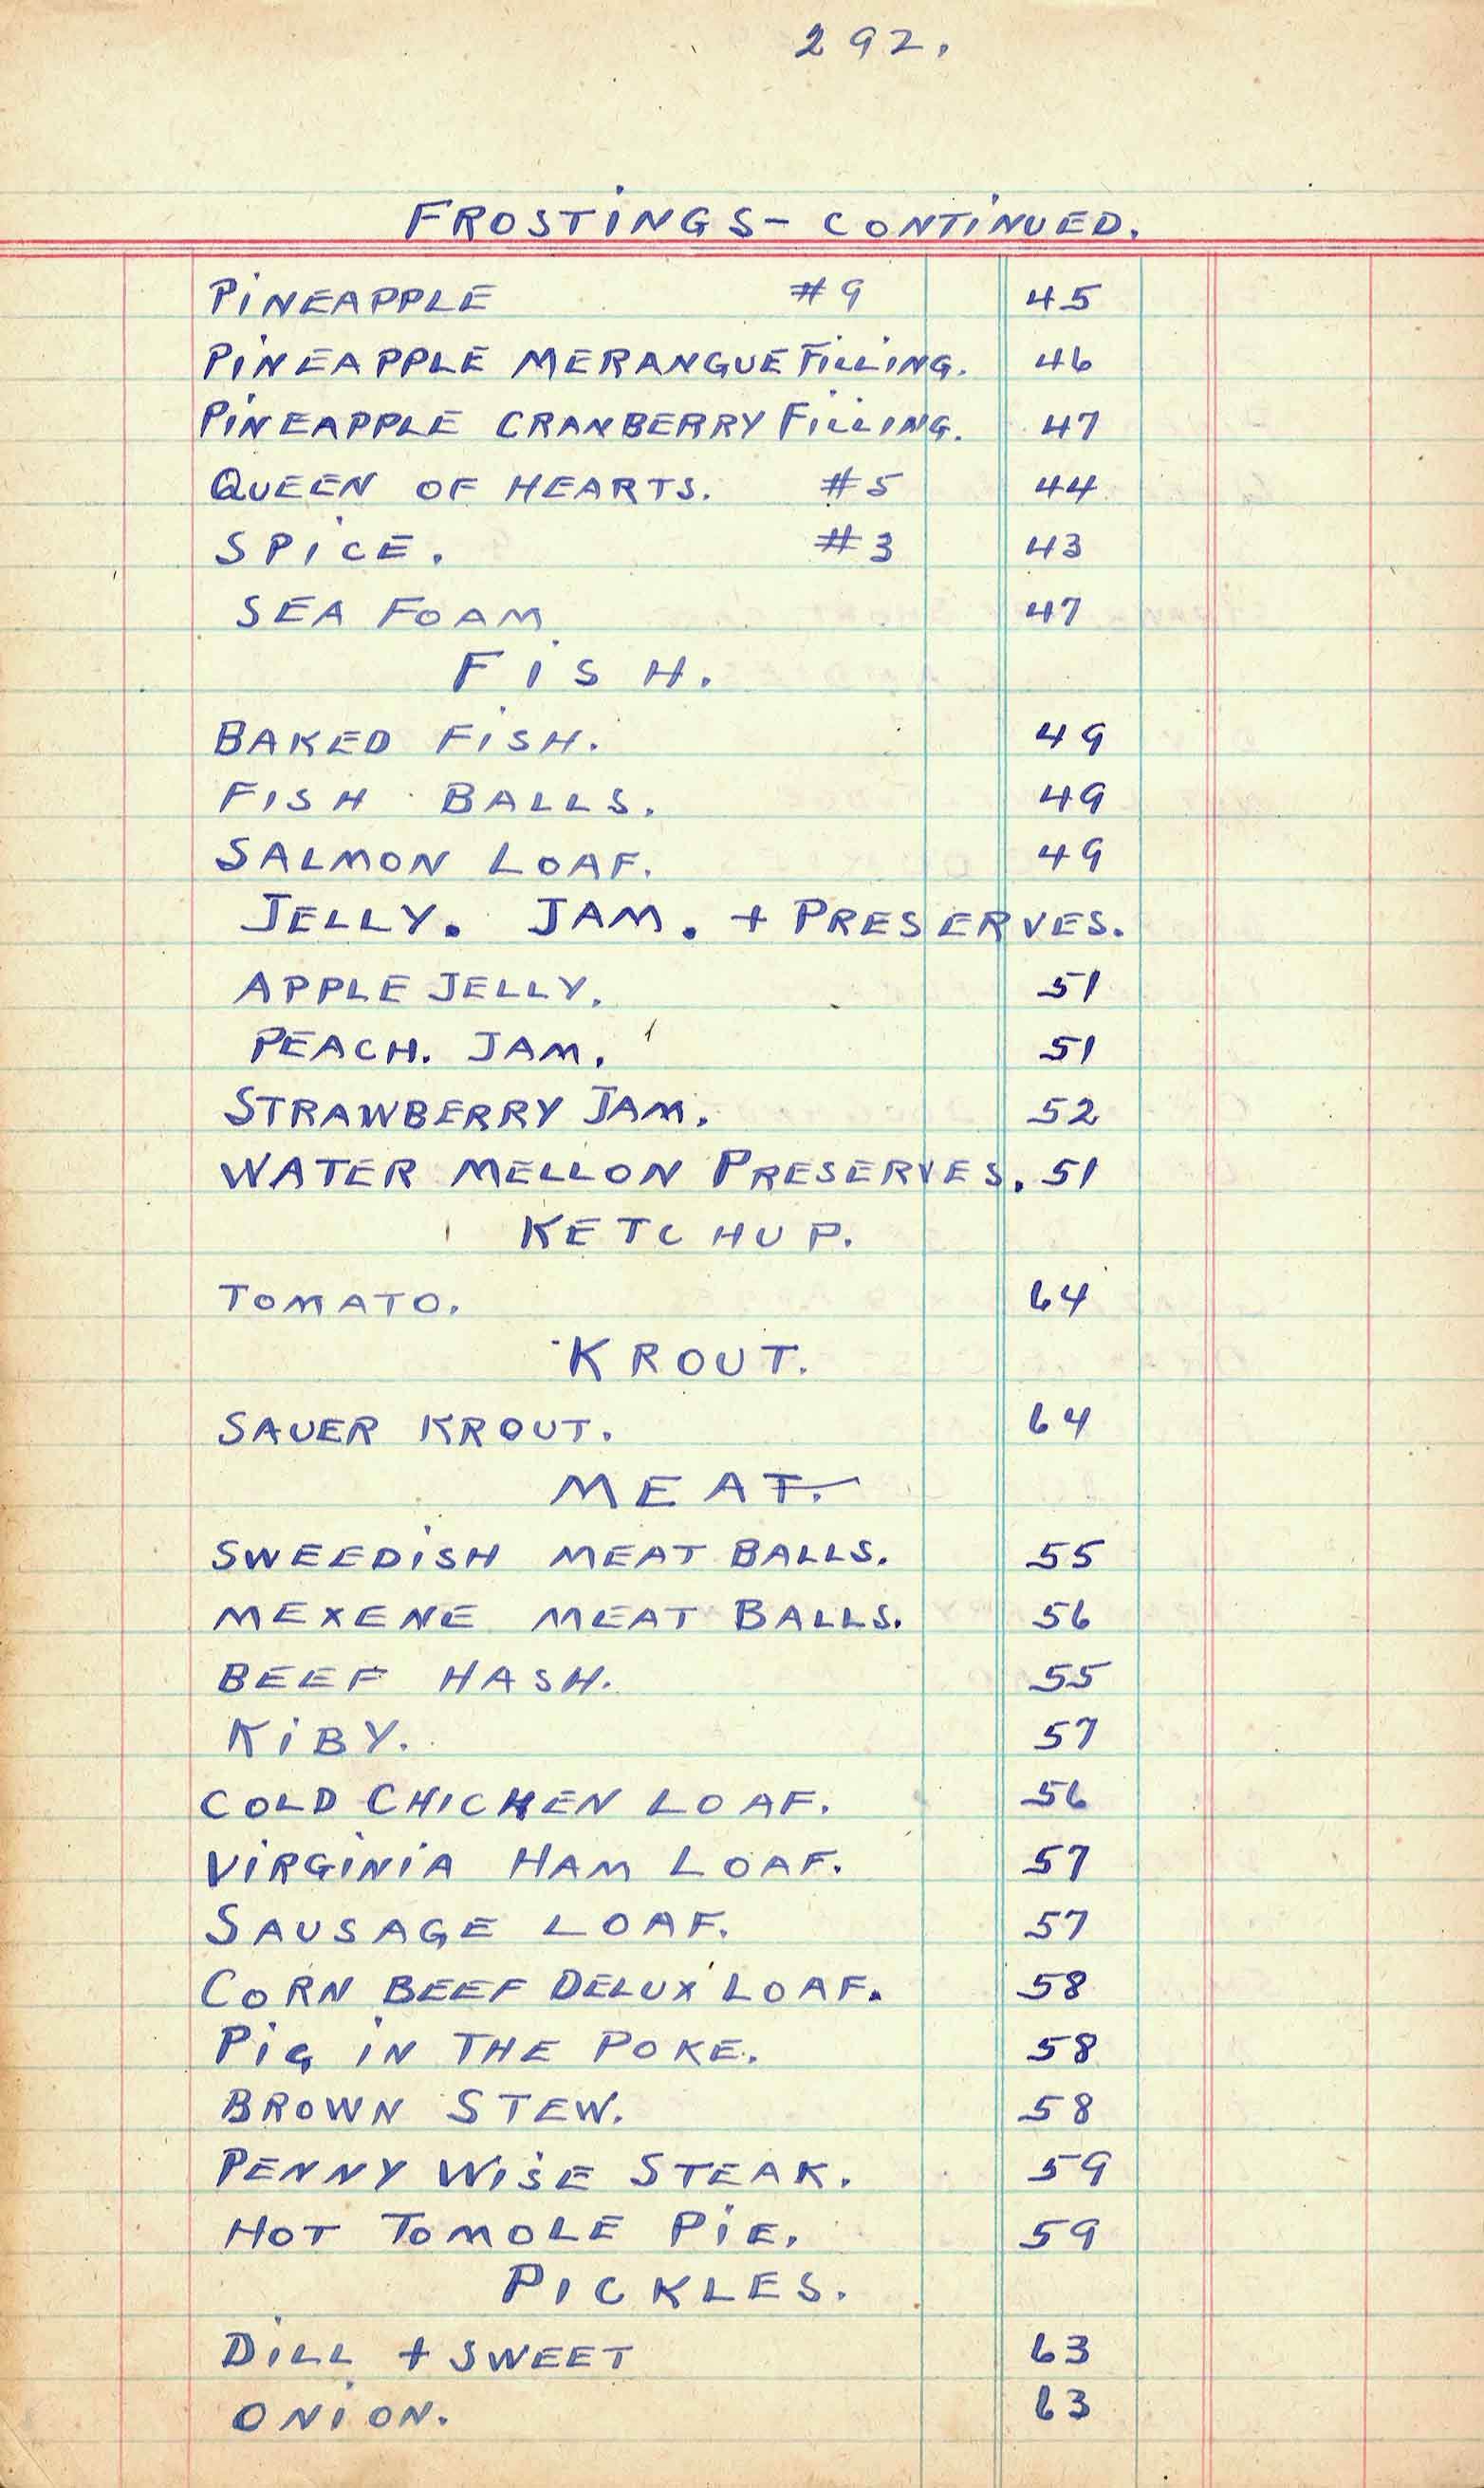 292.
FROSTINGS - CONTINUED.
PINEAPPLE #9 45
PINEAPPLE MERANGUE FILLING. 46
PINEAPPLE CRANBERRY FILLING. 47
QUEEN OF HEARTS. #5 44
SPICE. #3 43
SEA FOAM. 47
FISH.
BAKED FISH. 49
FISH BALLS. 49
SALMON LOAF. 49
JELLY. JAM. + PRESERVES.
APPLE JELLY. 51
PEACH. JAM. 51
STRAWBERRY JAM. 52
WATER MELLON PRESERVES. 51
KETCHUP.
TOMATO. 64
KROUT.
SAUER KROUT. 64
MEAT.
SWEEDISH MEAT BALLS. 55
MEXENE MEAT BALLS. 56
BEEF HASH. 55
KIBY. 57
COLD CHICKEN LOAF. 56
VIRGINIA HAM LOAF. 57
SAUSAGE LOAF. 57
CORN BEEF DELUX LOAF. 58
PIG IN THE POKE. 58
BROWN STEW. 58
PENNY WISE STEAK. 59
HOT TOMOLE PIE. 59
PICKLES.
DILL + SWEET 63
ONION. 63